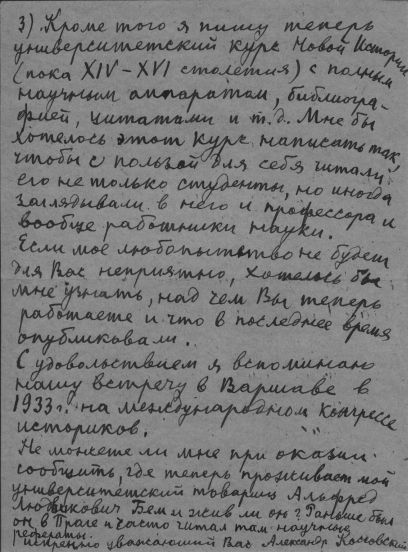 3) Кроме того я пишу теперь
университетский курс Новой Истории
(пока XIV–XVI столетия) с полным
научным аппаратом, библиогра-
фией, цитатами и т.д. Мне бы
хотелось этот курс написать так,
чтобы с пользой для себя читали
его не только студенты, но иногда
заглядывали в него и профессора и
вообще работники науки.
Если мое любопытство не будет
для Вас неприятно, хотелось бы
мне узнать, над чем Вы теперь
работаете и что в последнее время
опубликовали.
С удовольствием я вспоминаю
нашу встречу в Варшаве в
1933 г. на международном конгрессе
историков.
Не можете ли мне при оказии
сообщить, где теперь проживает мой
университетский товарищ Альфред
Людвикович Бем и жив ли он? Раньше был
он в Праге и часто читал там научные
рефераты.
Искренно уважающий Вас Александр